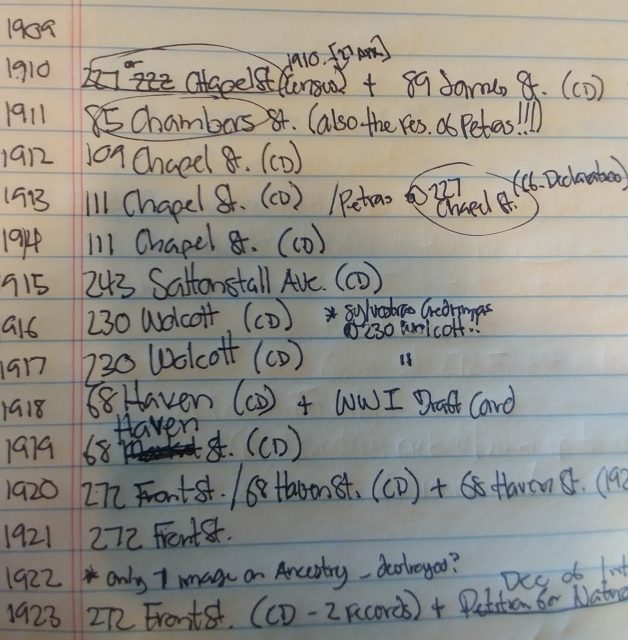 1909
1910 227 or 222 Chapel St (Census) 1910 + 89 James St. (CD)
1911 85 Chambers St. (also the res. of Petras!!!)
1912 109 Chapel St. (CD)
1913 111 Chapel St. (CD) /Petras @ 227 Chapel St.
1914 111 Chapel St. (CD)
1915 243 Saltonstall Ave. (CD)
1916 230 Wolcott (CD) * Sylvestras @ 230 Wolcott!!
1917 230 Wolcott (CD) "
1918 68 Haven (CD) + WWI Draft Card
Haven
1919 68 St. (CD)
1920 272 Front St. / 68 Haven St. (CD) + 68 Haven St. (192
1921 272 Front St.
1922 * only 1 image on Ancestry - destroyed?
Dec of Int
1923 272 Front St. (CD - 2 records) + Petition for Natura